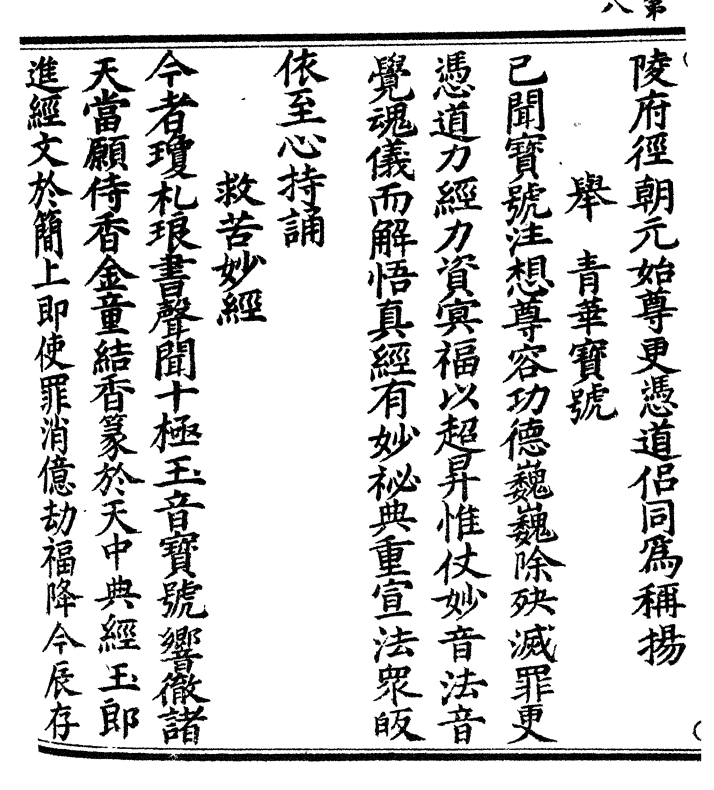 第
八
陵府徑朝元始尊更憑道侣同爲稱揚
舉　青華寶號
已聞寶號注想尊容功德巍巍除殃滅罪更
憑道力經力資冥福以超昇惟仗妙音法音
覺魂儀而解悟真經有妙祕典重宣法眾皈
依至心持誦
救苦妙經
今者瓊札琅書聲聞十極玉音寶號響徹諸
天當願侍香金童結香篆於天中典經玉郎
進經文於簡上即使罪消億劫福降今辰存